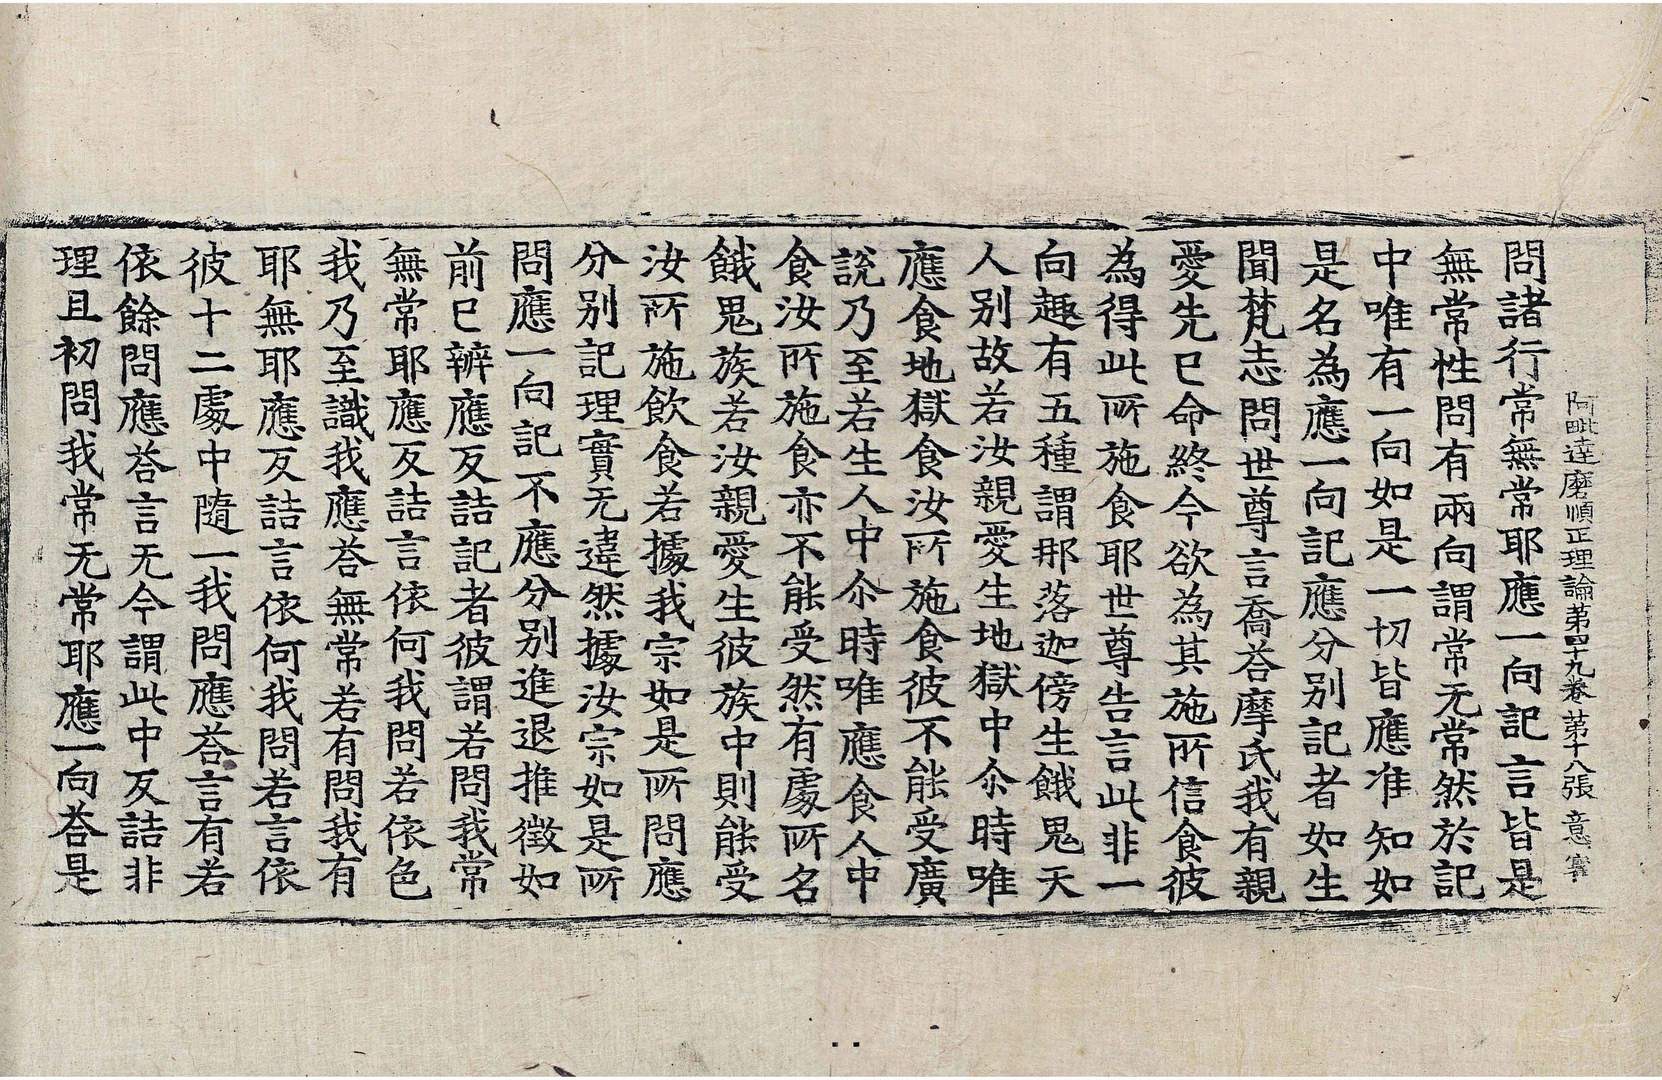 阿毗達磨順正理論第四十九卷 第十八張 意
問諸行常無常耶應一向記言皆是
無常性問有兩向謂常无常然於記
中唯有一向如是一切皆應准知如
是名為應一向記應分别記者如生
聞梵志問世尊言喬荅摩氏我有親
愛先已命終今欲為其施所信食彼
為得此所施食耶世尊告言此非一
向趣有五種謂那落迦傍生餓鬼天
人别故若汝親愛生地獄中尒時唯
應食地獄食汝所施食彼不能受廣
說乃至若生人中尒時唯應食人中
食汝所施食亦不能受然有處所名
餓鬼族若汝親愛生彼族中則能受
汝所施飲食若據我宗如是所問應
分别記理實无違然據汝宗如是所
問應一向記不應分别進退推徵如
前已辯應反詰記者彼謂若問我常
無常耶應反詰言依何我問若依色
我乃至識我應荅無常若有問我有
耶無耶應反詰言依何我問若言依
彼十二處中隨一我問應荅言有若
依餘問應荅言无今謂此中反詰非
理且初問我常无常耶應一向荅是